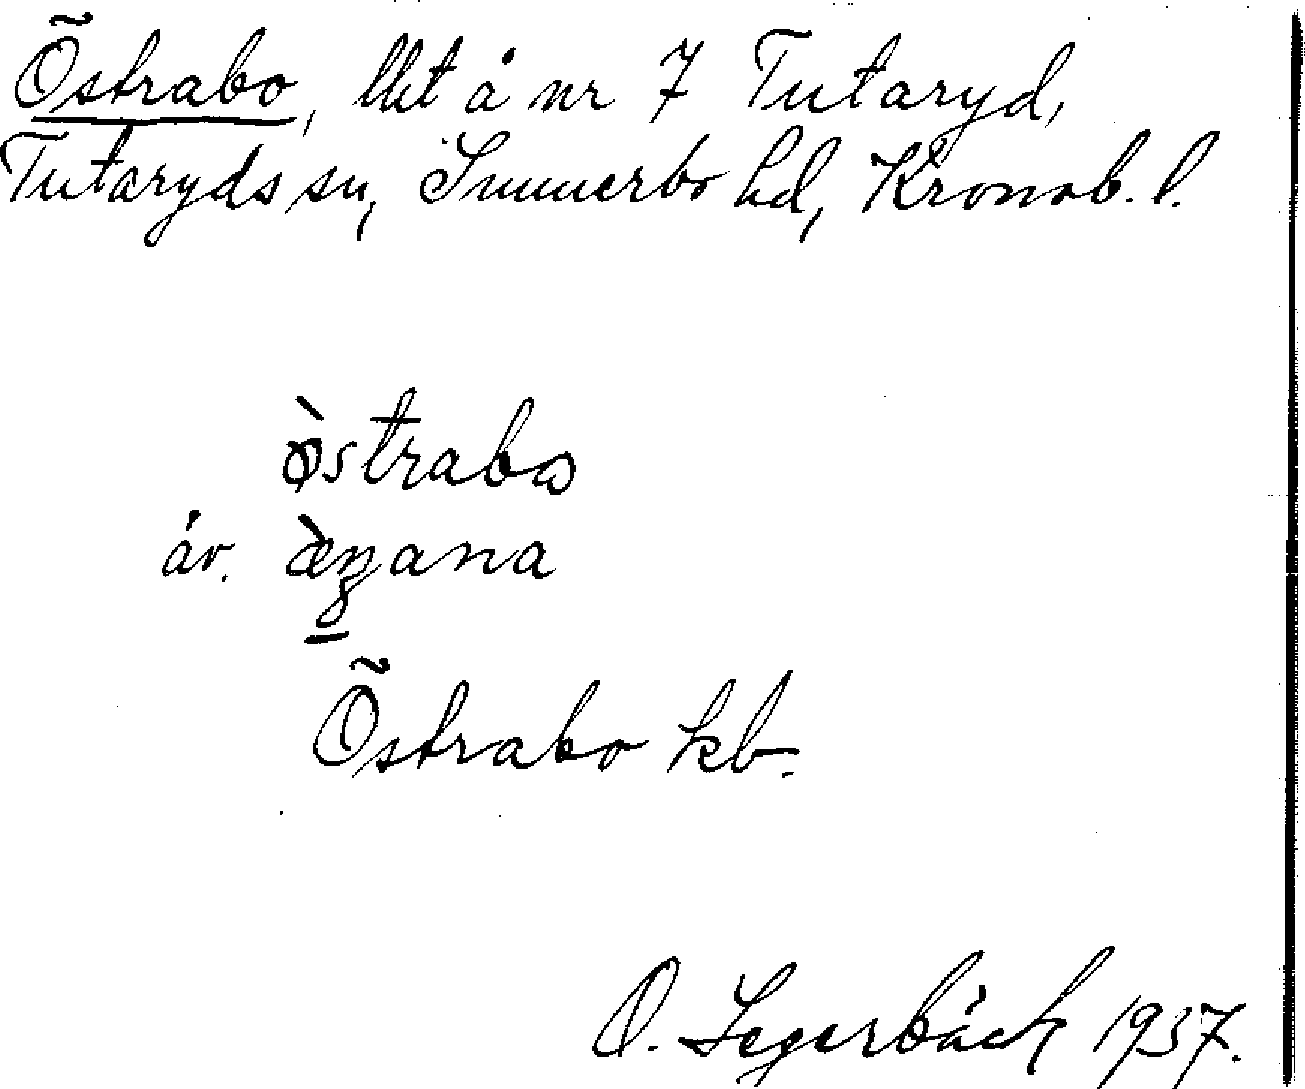 Östrabo, lht å nr 7 Tutaryd,
Tutaryds sn, Sunnerbo hd, Kronob. l.
östrabo
äv.
Östrabo kb.
O. Segerbäck 1937.